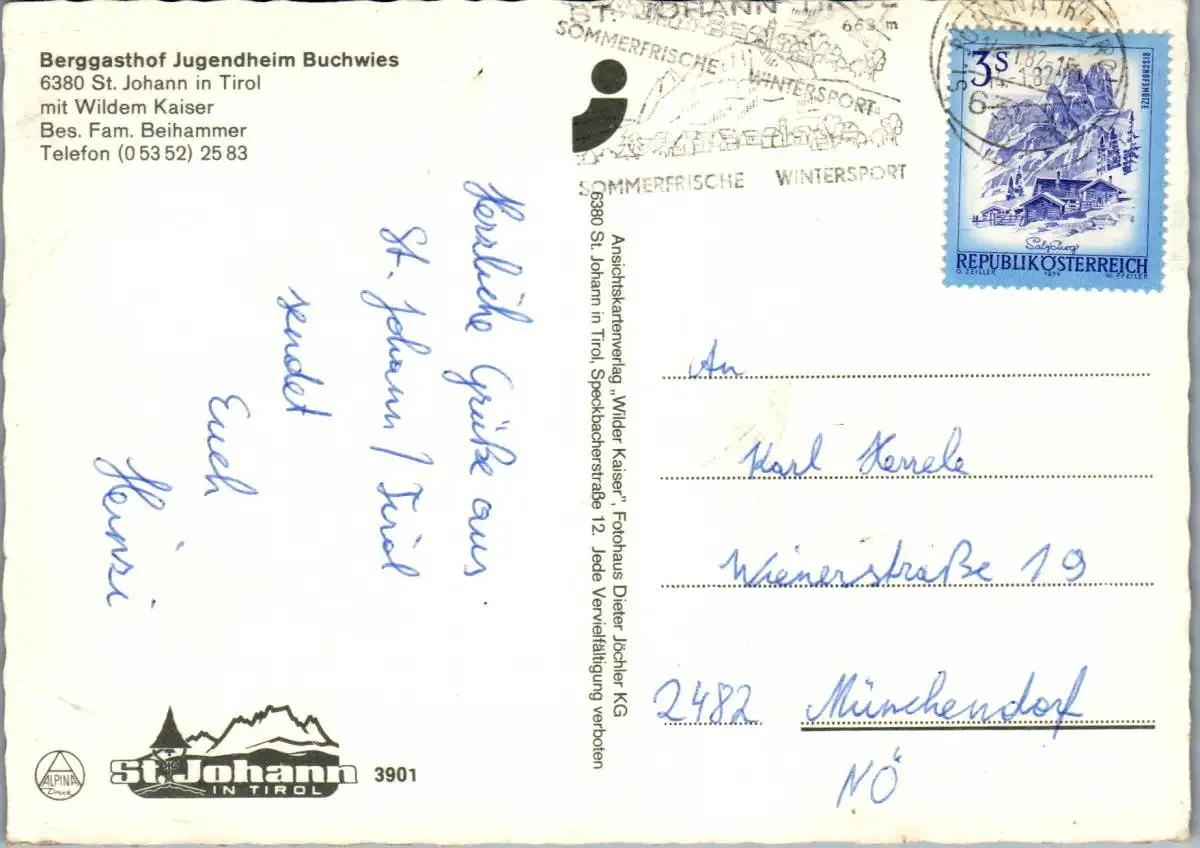 Berggasthof Jugendheim Buchwies
6380 St. Johann in Tirol
mit Wildem Kaiser
Bes. Fam. Beihammer
Telefon (0 53 52) 25 83
ST. JOHANN TIROL
663 m
SOMMERFRISCHE WINTERSPORT
SOMMERFRISCHE WINTERSPORT
3 S
BISCHOFSMÜTZE
Salzburg
REPUBLIK ÖSTERREICH
O. ZEILLER 1974 W. PFEILER
Herrliche Grüße aus
St. Johann / Tirol
sendet
Euch
Heinzi
Ansichtskartenverlag „Wilder Kaiser", Fotohaus Dieter Jöchler KG
6380 St. Johann in Tirol, Speckbacherstraße 12. Jede Vervielfältigung verboten
An
Karl Herrele
Wienerstraße 19
2482 Münchendorf
NÖ
ALPINA
Druck
St. Johann
IN TIROL
3901